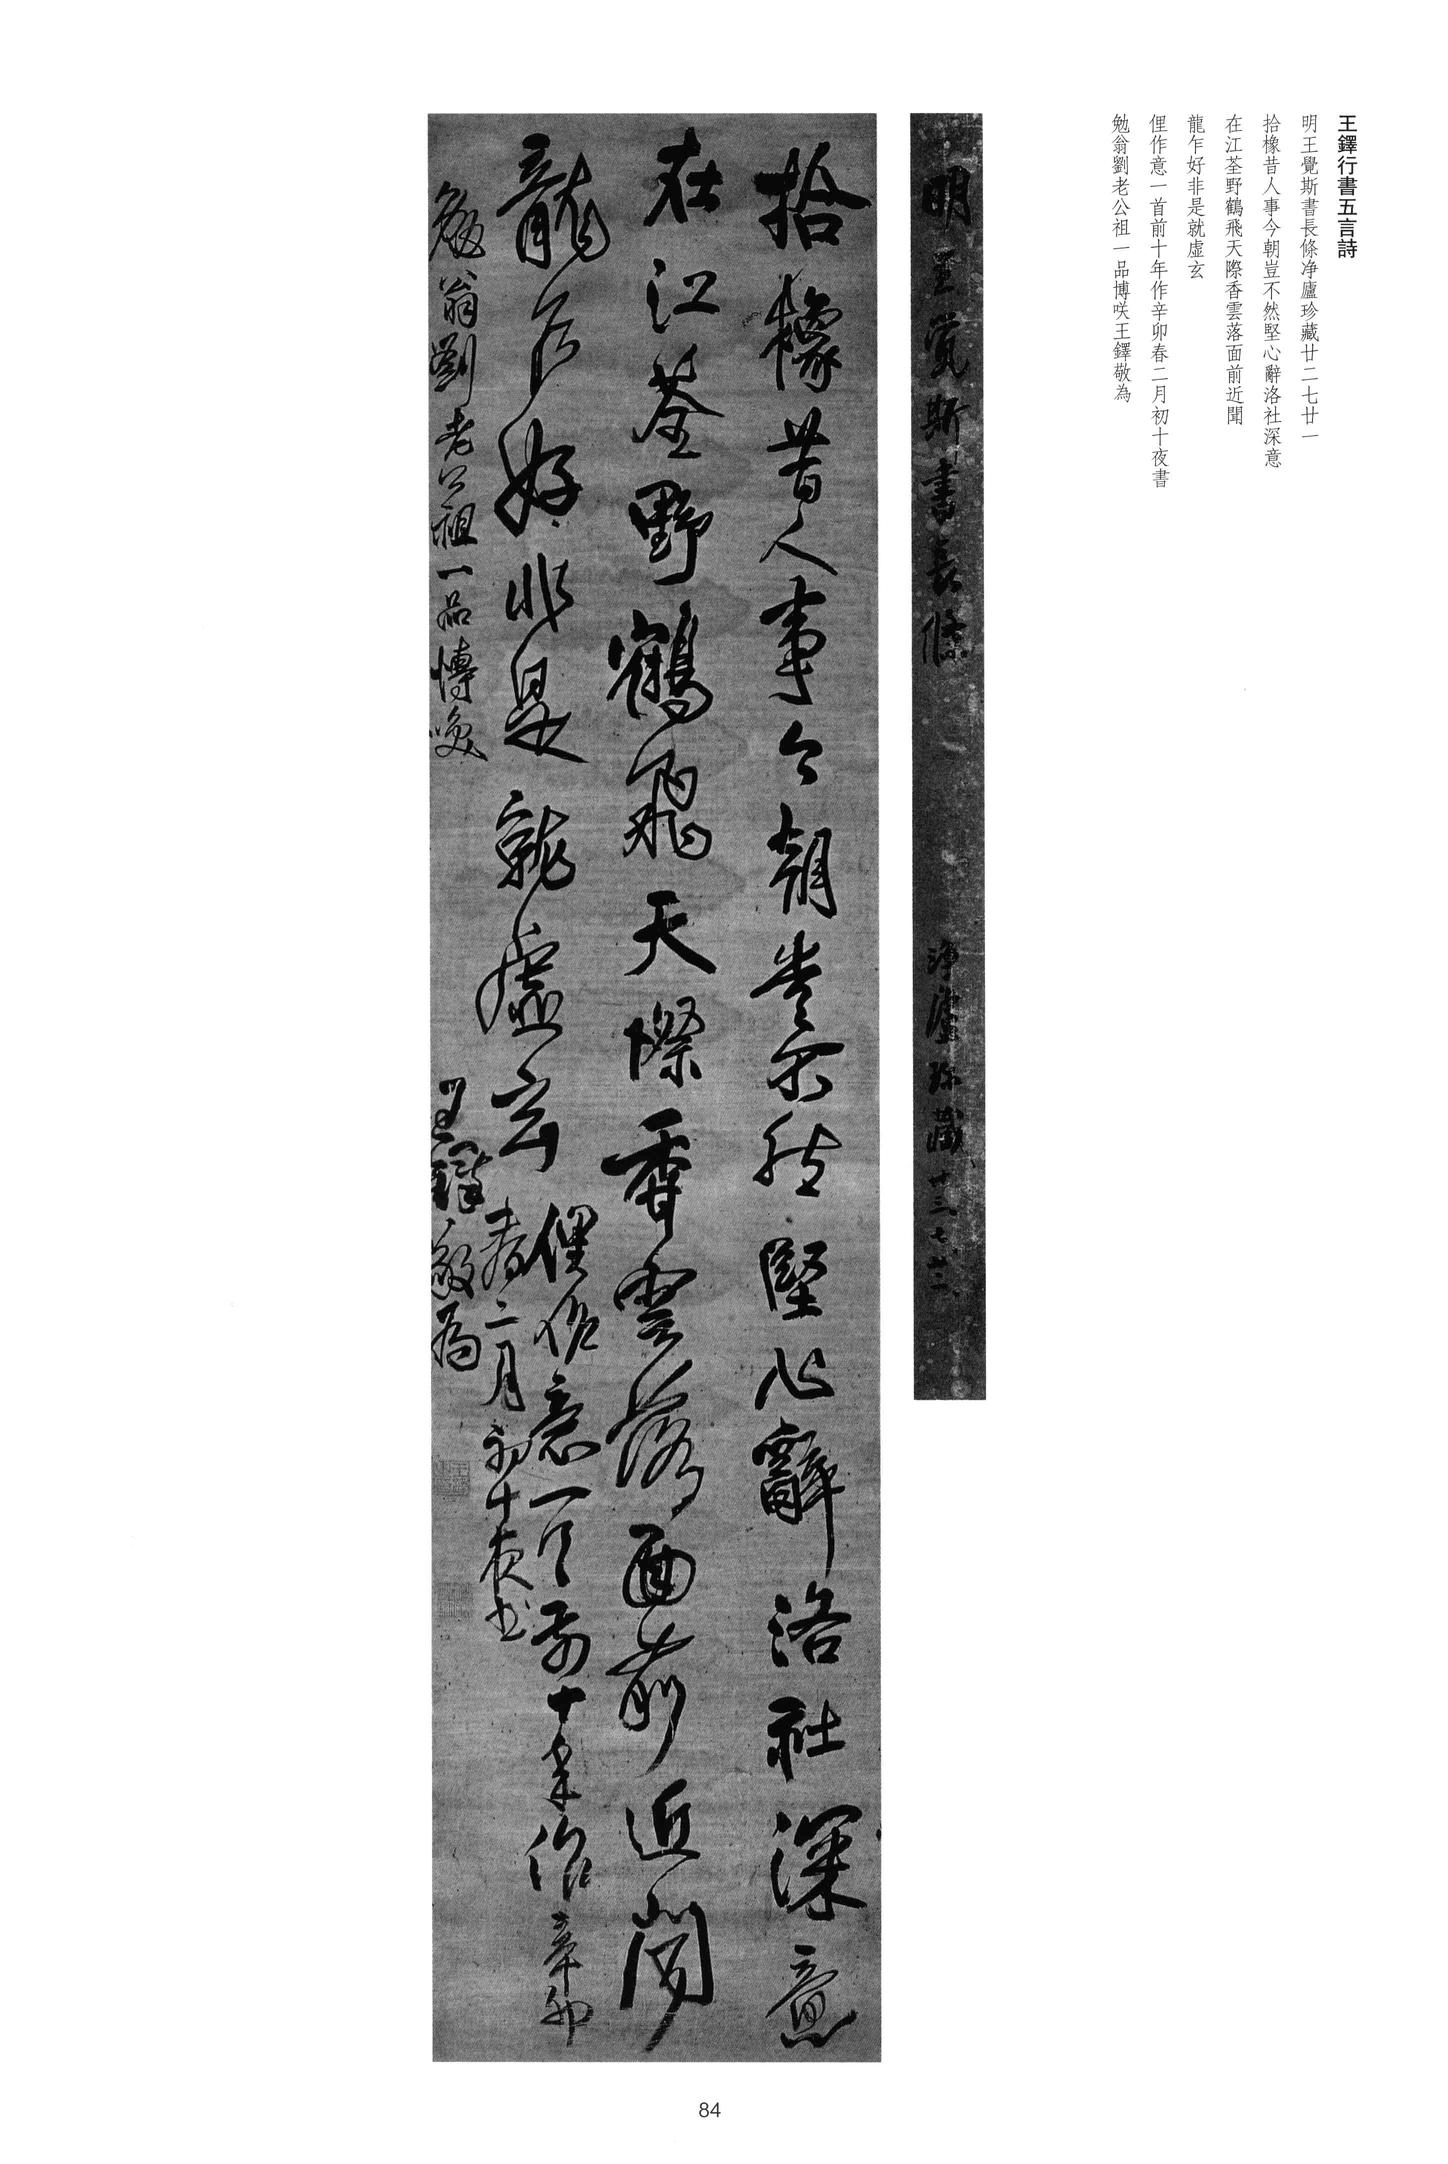 王鐸行書五言詩
明王覺斯書長條净廬珍藏廿二七廿一
拾橡昔人事今朝豈不然堅心辭洛社深意
在江荃野鶴飛天際香雲落面前近聞
龍乍好非是就虛玄
俚作意一首前十年作辛卯春二月初十夜書
勉翁劉老公祖一品博咲王鐸敬為
明王覺斯書長條 淨廬珍藏 廿三、七、廿二、
拾橡昔人事今朝豈不然堅心辭洛社深意
在江荃野鶴飛天際香雲落面前近聞
龍乍好非是就虛玄 俚作意一首前十年作辛卯
春二月初十夜書
勉翁劉老公祖一品博咲 王鐸敬為
84